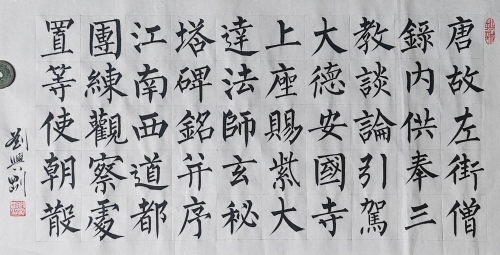 唐故左街僧
錄內供奉三
教談論引駕
大德安國寺
上座賜紫大
達法師玄秘
塔碑銘并序
江南西道都
團練觀察處
置等使朝散